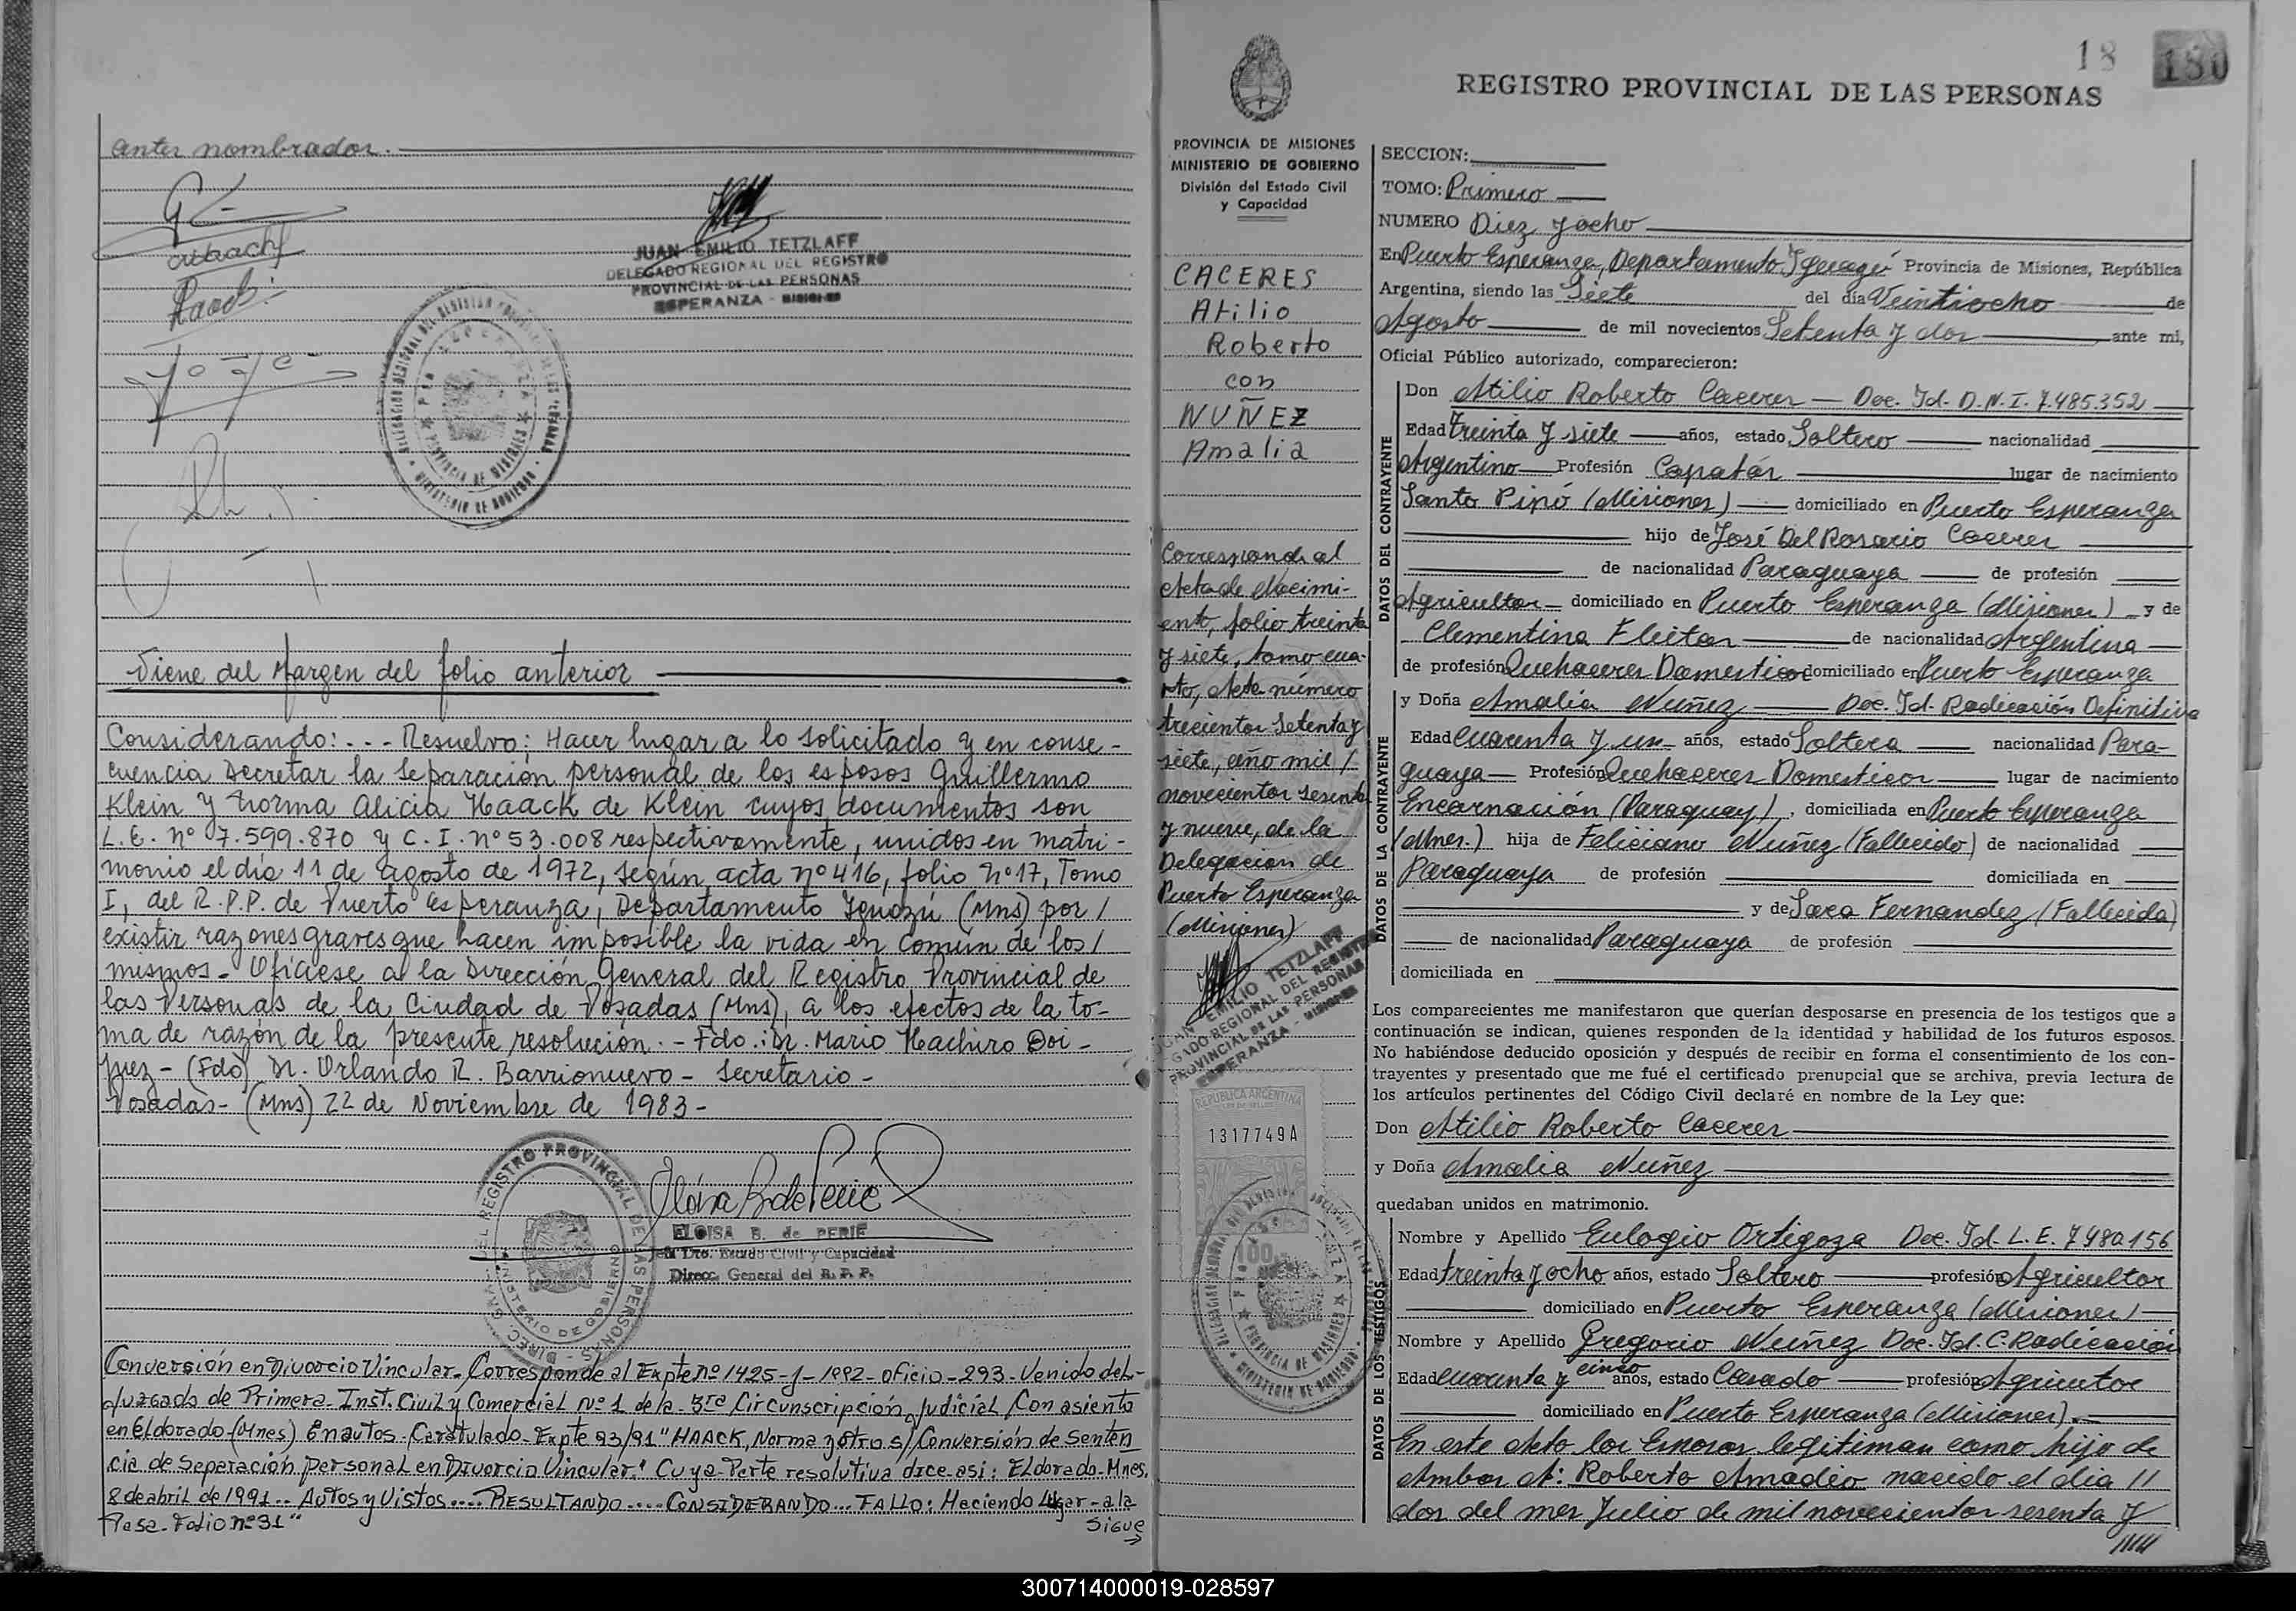 antes nombrados.
JUAN EMILIO TETZLAFF
DELEGADO REGIONAL DEL REGISTRO
PROVINCIAL DE LAS PERSONAS
ESPERANZA - MISIONES
Viene del Margen del folio anterior
Considerando: . . - Resuelvo: Hacer lugar a lo solicitado y en conse-
cuencia Decretar la Separación personal de los esposos Guillermo
Klein y Norma Alicia Haack de Klein cuyos documentos son
L.E. nº 7.599.870 y C.I. nº 53.008 respectivamente, unidos en matri-
monio el día 11 de agosto de 1972, según acta nº 416, folio nº 17, Tomo
I, del R.P.P. de Puerto Esperanza, Departamento Iguazú (Mns) por /
existir razones graves que hacen imposible la vida en común de los /
mismos - Ofíciese a la Dirección General del Registro Provincial de
las Personas de la Ciudad de Posadas (Mns), a los efectos de la to-
ma de razón de la presente resolución. - Fdo.: Dr. Mario Hachiro Doi -
Juez - (Fdo) Dr. Orlando R. Barrionuevo - Secretario -
Posadas - (Mns) 22 de Noviembre de 1983 -
DIREC. GRAL. DEL REGISTRO PROVINCIAL DE LAS PERSONAS
MINISTERIO DE GOBIERNO
ELOISA B. de PERIE
Jefa Dto. Estado Civil y Capacidad
Direcc. General del R. P. P.
Conversión en Divorcio Vincular - Corresponde al Expte nº 1425-J-1992 - Oficio - 293 - Venido del -
Juzgado de Primera Inst. Civil y Comercial Nº 1 de la 3ra Circunscripción Judicial Con asiento
en Eldorado (Mnes) En autos Caratulado - Expte 93/91 "HAACK, Norma y otro s/ Conversión de Senten
cia de Separación personal en Divorcio Vincular." Cuya Parte resolutiva dice asi: Eldorado - Mnes,
8 de abril de 1991 .. Autos y Vistos .... RESULTANDO .... CONSIDERANDO ... FALLO: Haciendo Lugar - a la
Pasa - Folio nº 31"
Sigue
18 180
REGISTRO PROVINCIAL DE LAS PERSONAS
PROVINCIA DE MISIONES
MINISTERIO DE GOBIERNO
División del Estado Civil
y Capacidad
CACERES
Atilio
Roberto
con
NUÑEZ
Amalia
Corresponde al
Acta de Nacimi-
ento, folio treinta
y siete, tomo cua-
rto, Acta número
trecientos Setenta y
siete, año mil /
novecientos sesenta
y nueve, de la
Delegación de
Puerto Esperanza
(Misiones)
JUAN EMILIO TETZLAFF
DELEGADO REGIONAL DEL REGISTRO
PROVINCIAL DE LAS PERSONAS
ESPERANZA - MISIONES
REPUBLICA ARGENTINA
1317749A
100
SECCION:
TOMO: Primero
NUMERO Diez y ocho
En Puerto Esperanza, Departamento Iguazú Provincia de Misiones, República
Argentina, siendo las Siete del día Veintiocho de
Agosto de mil novecientos Setenta y dos ante mi,
Oficial Público autorizado, comparecieron:
DATOS DEL CONTRAYENTE
Don Atilio Roberto Caceres — Doc. Id. D.N.I. 7.485.352
Edad treinta y siete años, estado Soltero nacionalidad
Argentino Profesión Capatás lugar de nacimiento
Santo Pipó (Misiones) domiciliado en Puerto Esperanza
hijo de José Del Rosario Caceres
de nacionalidad Paraguaya de profesión
Agricultor domiciliado en Puerto Esperanza (Misiones) y de
Clementina Fleitas de nacionalidad Argentina
de profesión Quehaceres Domesticos domiciliado en Puerto Esperanza
DATOS DE LA CONTRAYENTE
y Doña Amalia Nuñez — Doc. Id. Radicación Definitiva
Edad Cuarenta y un años, estado Soltera nacionalidad Para-
guaya Profesión Quehaceres Domesticos lugar de nacimiento
Encarnación (Paraguay), domiciliada en Puerto Esperanza
(Mnes.) hija de Feliciano Nuñez (Fallecido) de nacionalidad
Paraguaya de profesión domiciliada en
y de Sara Fernandez (Fallecida)
de nacionalidad Paraguaya de profesión
domiciliada en
Los comparecientes me manifestaron que querían desposarse en presencia de los testigos que a
continuación se indican, quienes responden de la identidad y habilidad de los futuros esposos.
No habiéndose deducido oposición y después de recibir en forma el consentimiento de los con-
trayentes y presentado que me fué el certificado prenupcial que se archiva, previa lectura de
los artículos pertinentes del Código Civil declaré en nombre de la Ley que:
Don Atilio Roberto Caceres
y Doña Amalia Nuñez
quedaban unidos en matrimonio.
DATOS DE LOS TESTIGOS
Nombre y Apellido Eulogio Ortigoza Doc. Id. L.E. 7480156
Edad treinta y ocho años, estado Soltero profesión Agricultor
domiciliado en Puerto Esperanza (Misiones)
Nombre y Apellido Gregorio Nuñez Doc. Id. C. Radicación
Edad cuarenta y cinco años, estado Casado profesión Agricultor
domiciliado en Puerto Esperanza (Misiones).
En este Acto los Esposos legitiman como hijo de
Ambos A: Roberto Amadeo nacido el dia 11
dos del mes Julio de mil novecientos sesenta y
/////
300714000019-028597